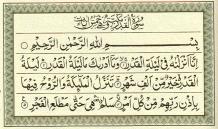 سورة القدر
بِسْمِ اللَّهِ الرَّحْمَٰنِ الرَّحِيمِ
إِنَّا أَنزَلْنَاهُ فِي لَيْلَةِ الْقَدْرِ وَمَا أَدْرَاكَ مَا لَيْلَةُ الْقَدْرِ لَيْلَةُ
الْقَدْرِ خَيْرٌ مِّنْ أَلْفِ شَهْرٍ تَنَزَّلُ الْمَلَائِكَةُ وَالرُّوحُ فِيهَا
بِإِذْنِ رَبِّهِم مِّن كُلِّ أَمْرٍ سَلَامٌ هِيَ حَتَّىٰ مَطْلَعِ الْفَجْرِ